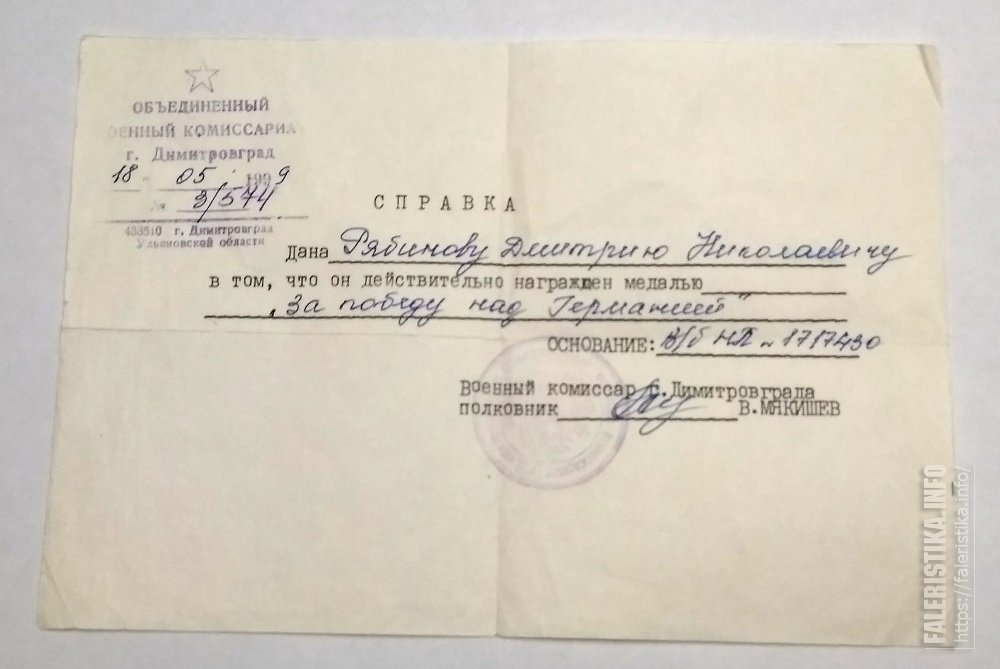 ОБЪЕДИНЕННЫЙ
ОЕННЫЙ КОМИССАРИА
г. Димитровград
18 - 05 1999
№ 3/574
433510 г. Димитровград
Ульяновской области
СПРАВКА
Дана Рябинову Дмитрию Николаевичу
в том, что он действительно награжден медалью
„За победу над Германией"
ОСНОВАНИЕ: В/б НП № 1717430
Военный комиссар г.Димитровграда
полковник В.МЯКИШЕВ
FALERISTIKA.INFO
https://faleristika.info/